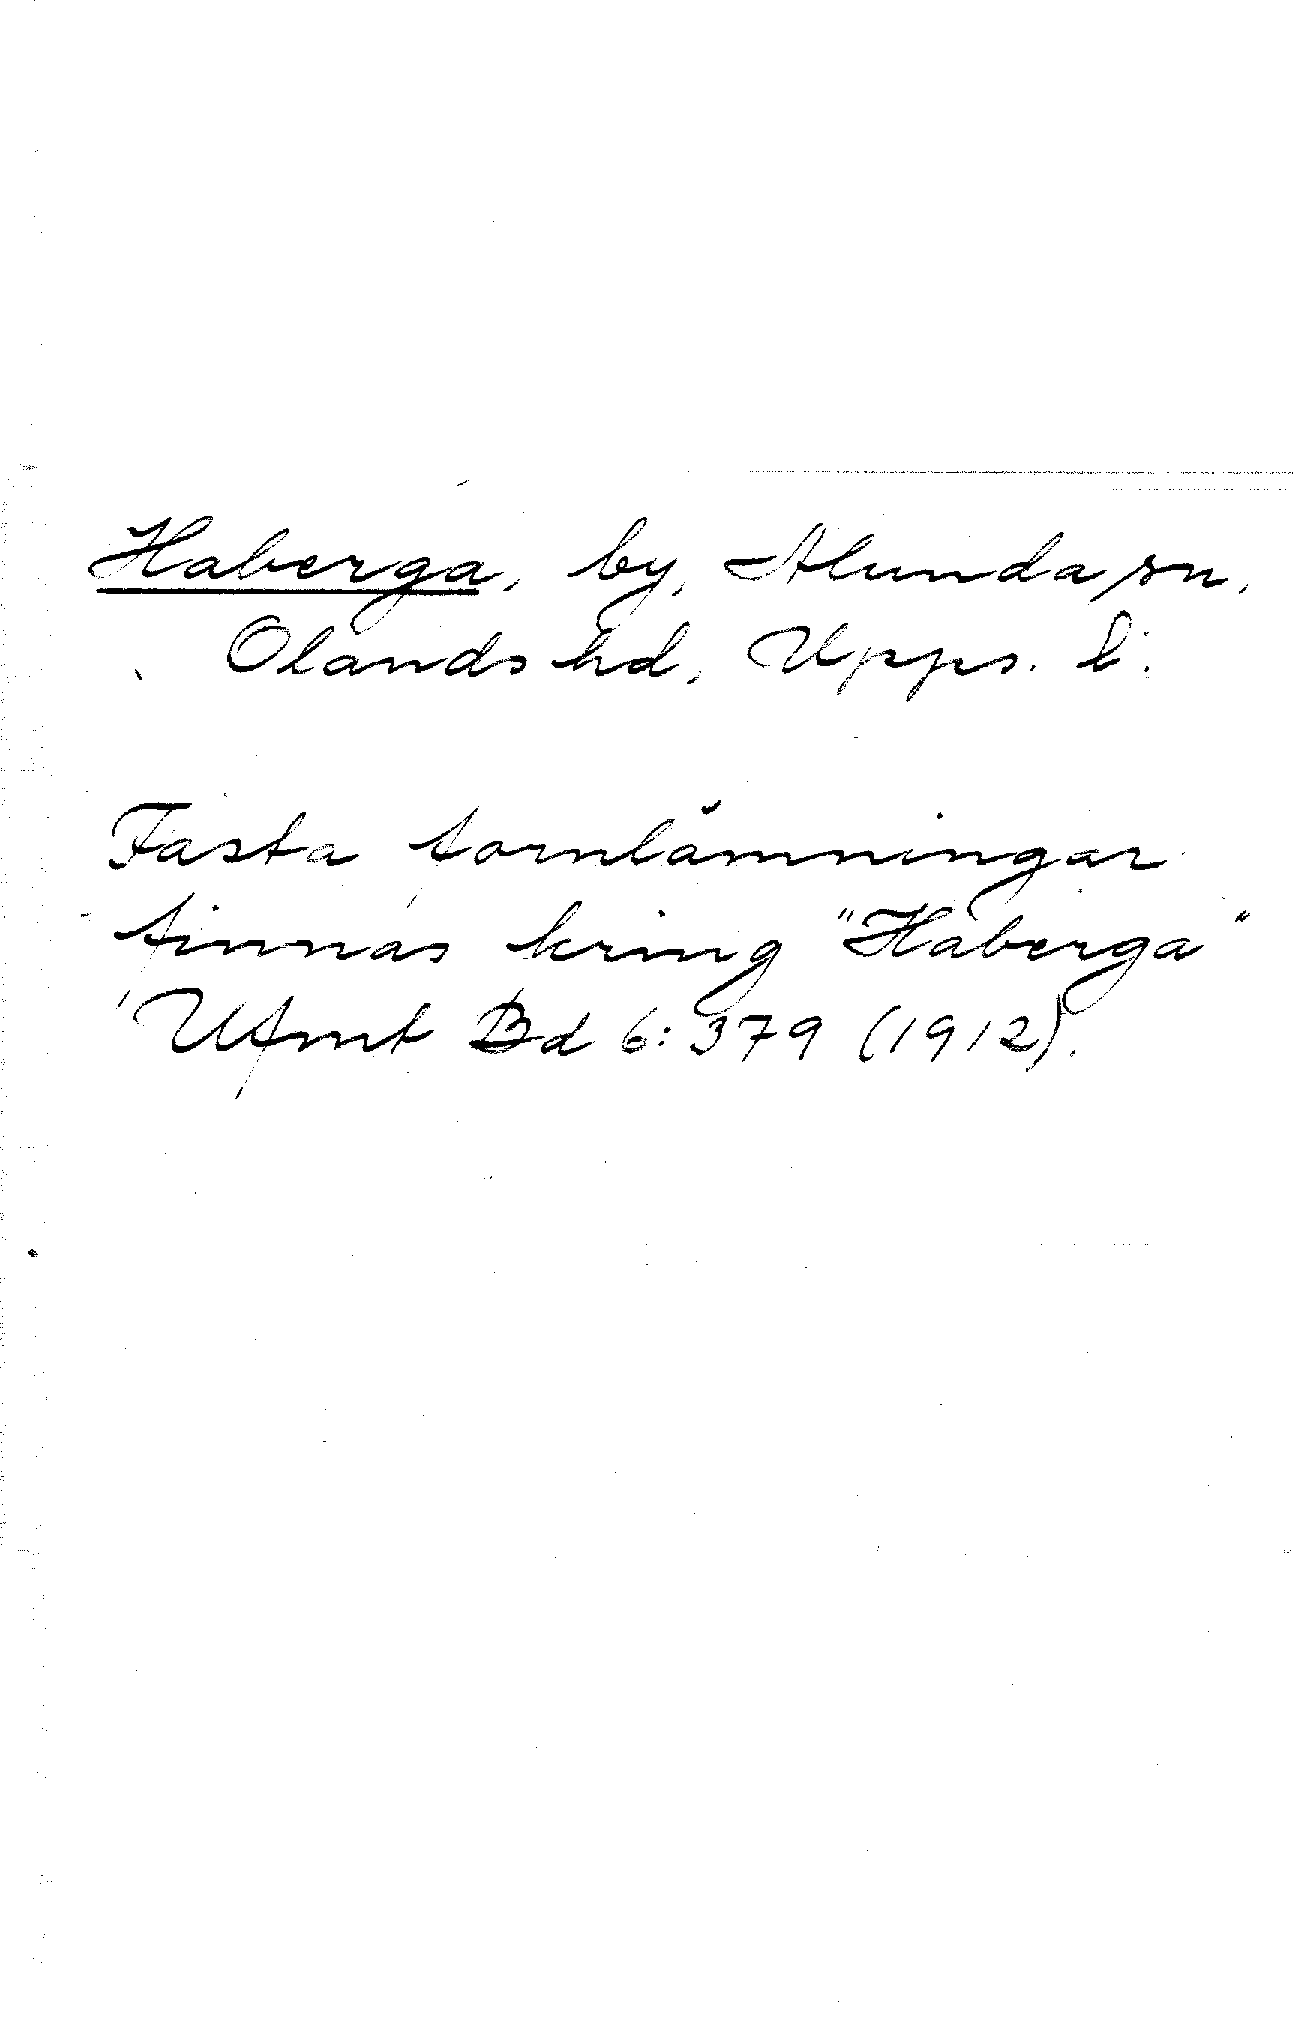 Haberga, by, Alunda sn,
Olands hd, Upps. l.
Fasta fornlämningar
finnas kring "Haberga"
Ufmt Bd 6:379 (1912).